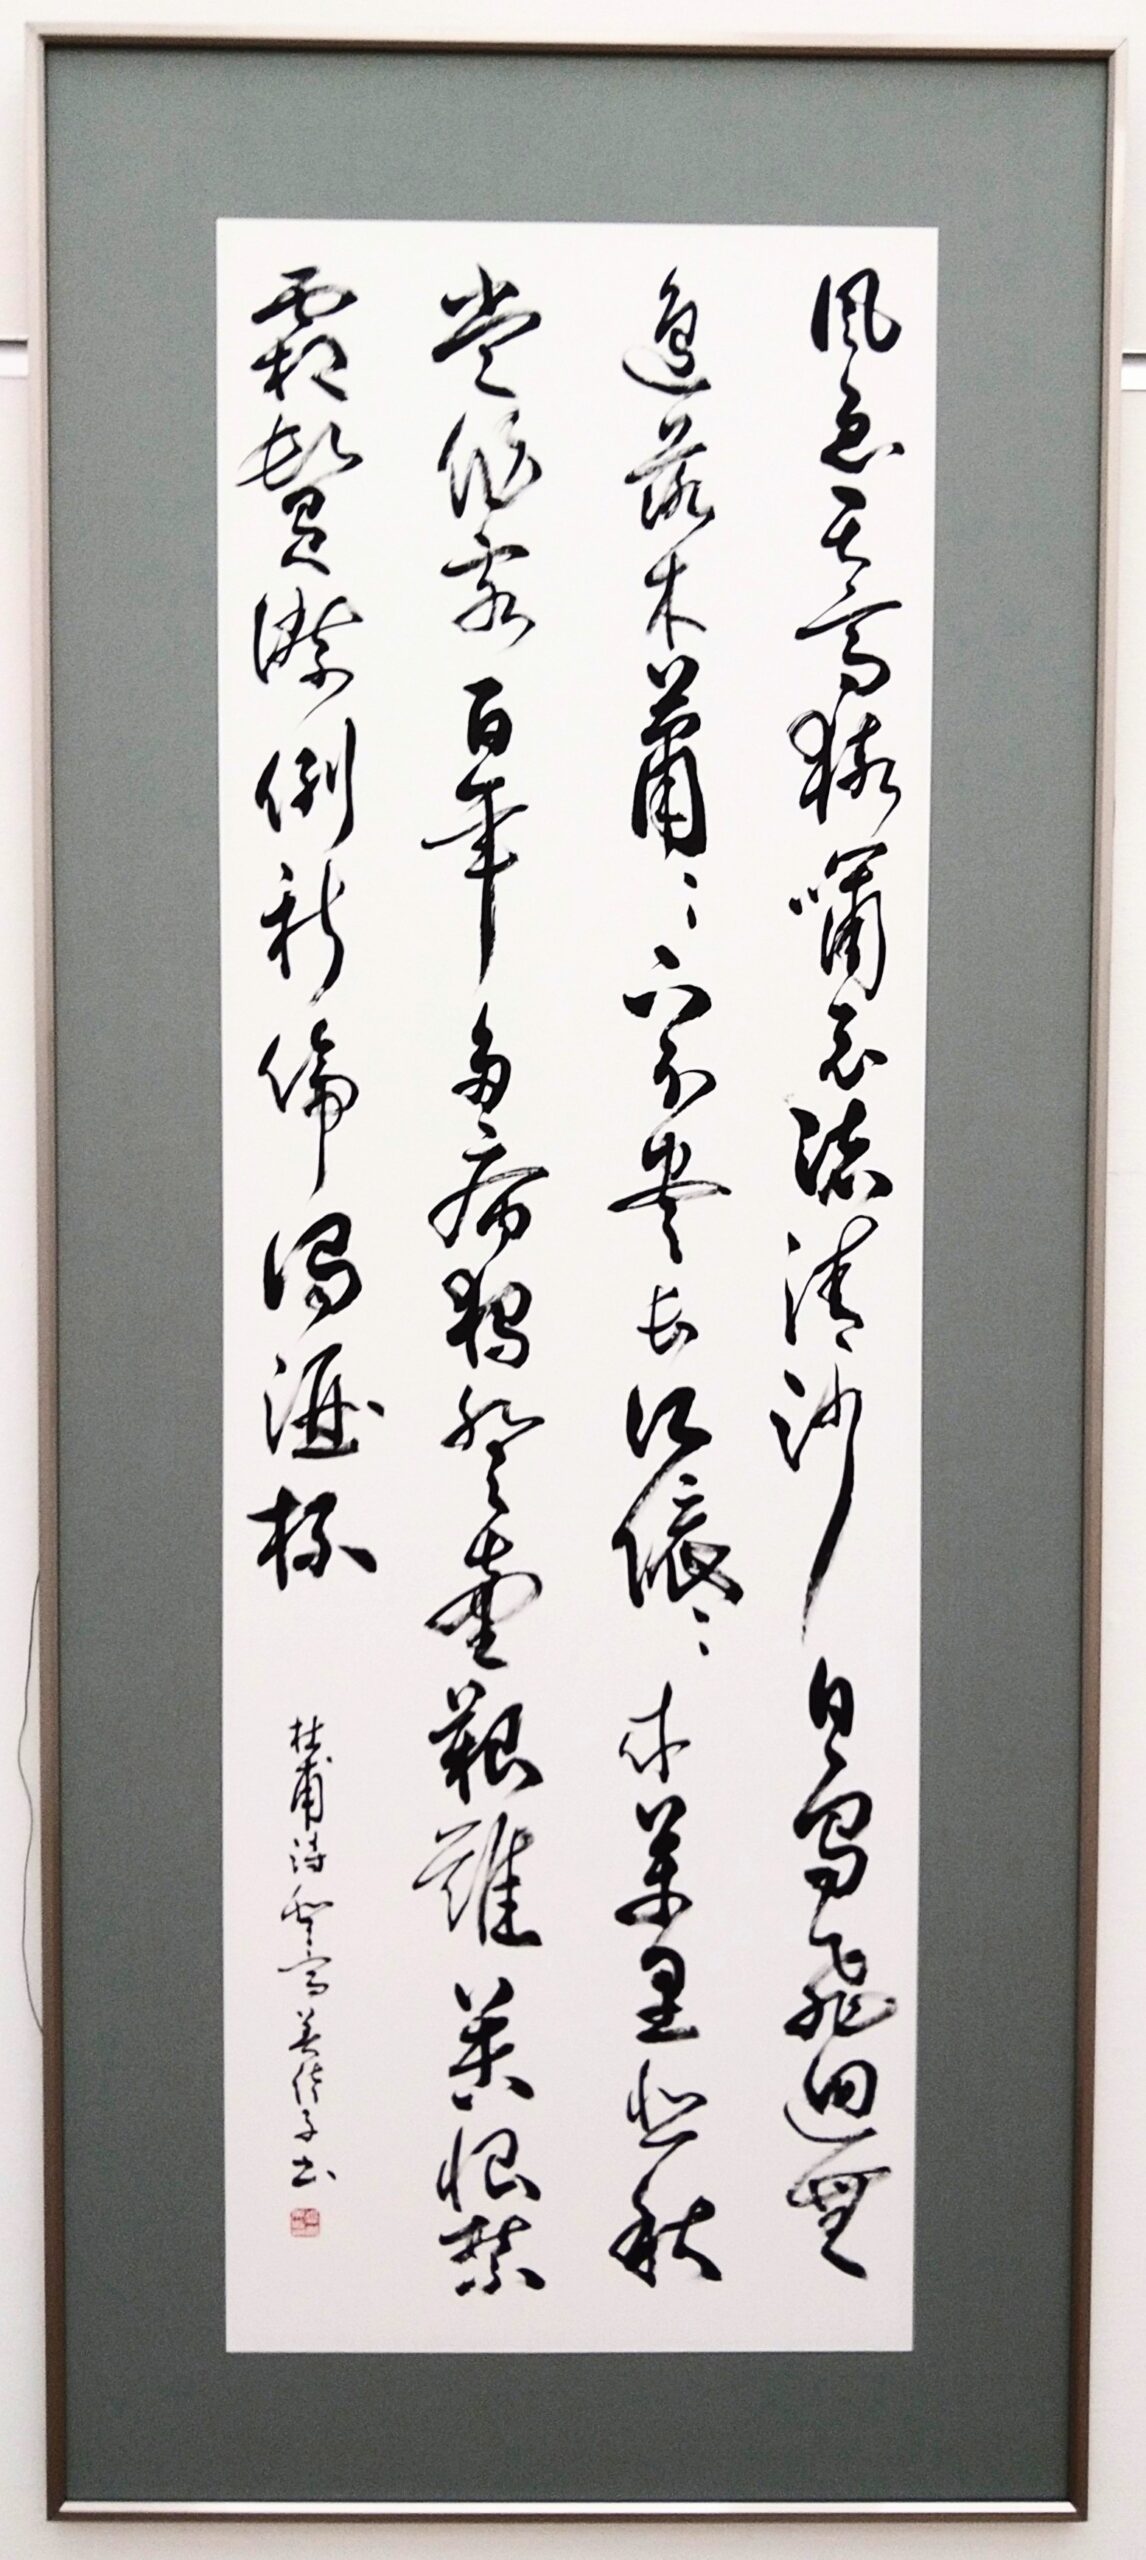 風急天高猿嘯哀渚清沙白鳥飛迴無
邊落木蕭〻下不盡長江滾〻來萬里悲秋
常作客百年多病獨登臺艱難苦恨繁
霜鬢潦倒新停濁酒杯
杜甫詩登高 美佳子書